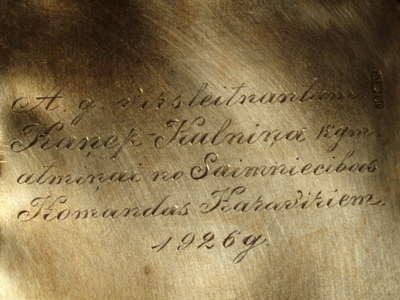 A. g. virsleitnantam
Kaņep-Kalniņa kgm.
atmiņai no Saimniecības
Komandas Karavīriem.
1926 g.